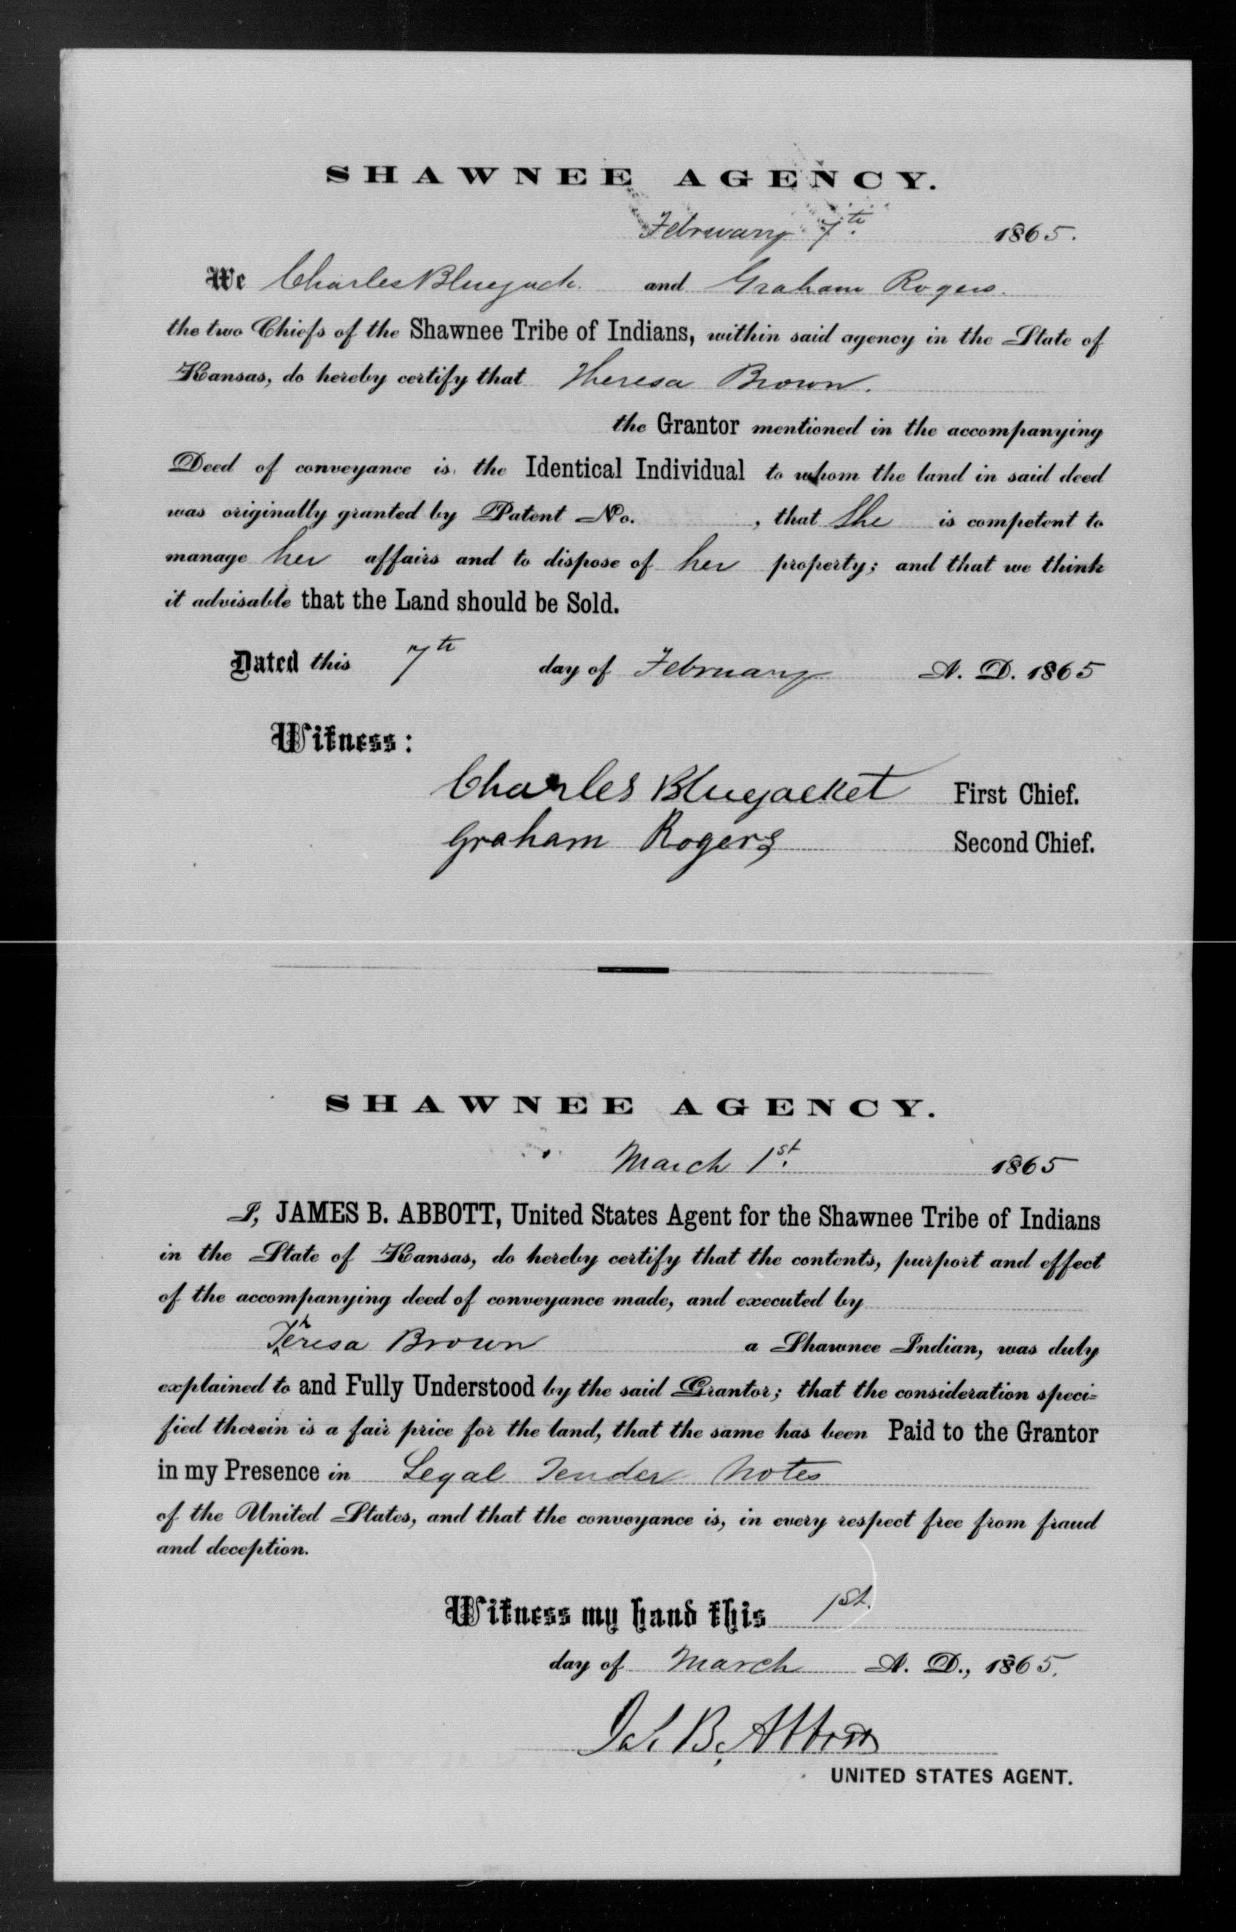 SHAWNEE AGENCY.
February 7th. 1865.
We Charles Bluejack. and Graham Rogers.
the two Chiefs of the Shawnee Tribe of Indians, within said agency in the State of
Kansas, do hereby certify that Theresa Brown.
the Grantor mentioned in the accompanying
Deed of conveyance is the Identical Individual to whom the land in said deed
was originally granted by Patent No. , that She is competent to
manage her affairs and to dispose of her property; and that we think
it advisable that the Land should be Sold.
Dated this 7th day of February A. D. 1865
Witness:
Charles Bluejacket First Chief.
Graham Rogers Second Chief.
SHAWNEE AGENCY.
March 1st. 1865
I, JAMES B. ABBOTT, United States Agent for the Shawnee Tribe of Indians
in the State of Kansas, do hereby certify that the contents, purport and effect
of the accompanying deed of conveyance made, and executed by
Theresa Brown a Shawnee Indian, was duly
explained to and Fully Understood by the said Grantor; that the consideration speci=
fied therein is a fair price for the land, that the same has been Paid to the Grantor
in my Presence in Legal Tender Notes
of the United States, and that the conveyance is, in every respect free from fraud
and deception.
Witness my hand this 1st.
day of March A. D., 1865.
Jas. B. Abbott
UNITED STATES AGENT.